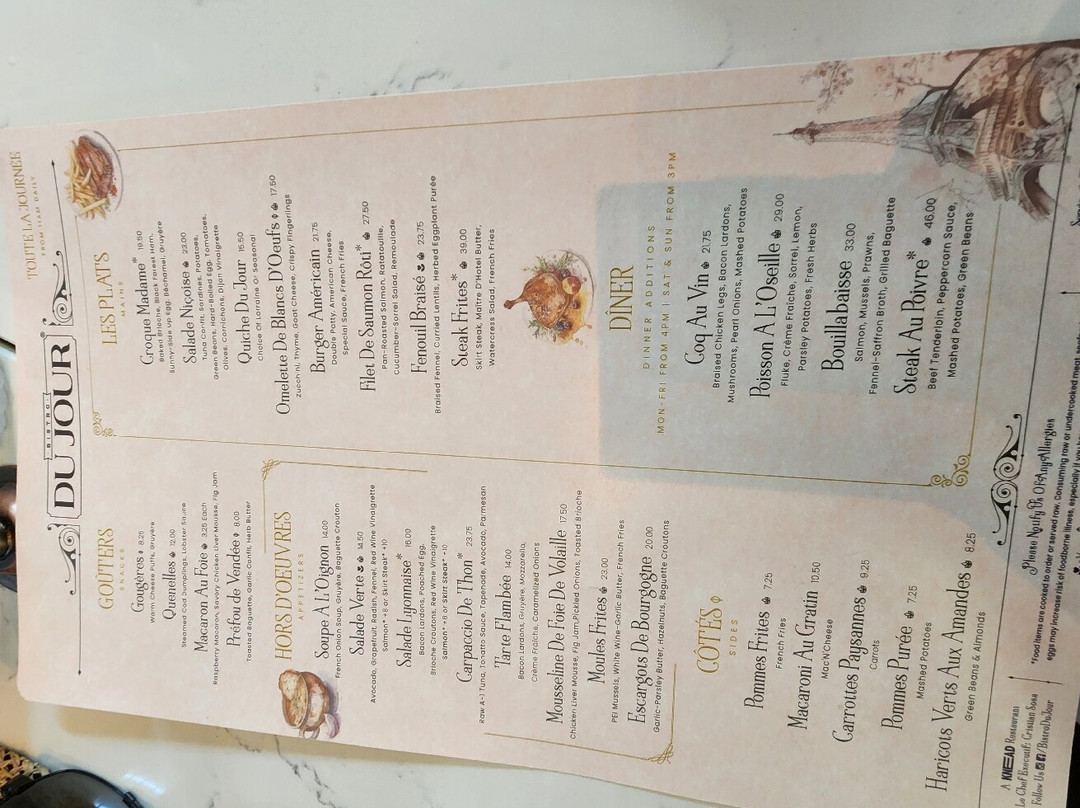 BISTRO
DU JOUR
GOÛTERS
SNACKS
Gougères 8.25
Warm Cheese Puffs, Gruyère
Quenelles 12.00
Steamed Cod Dumplings, Lobster Sauce
Macaron Au Foie 3.25 Each
Raspberry Macaron, Savory Chicken Liver Mousse, Fig Jam
Préfou de Vendée 8.00
Toasted Baguette, Garlic Confit, Herb Butter
HORS D'OEUVRES
APPETIZERS
Soupe À L'Oignon 14.00
French Onion Soup, Gruyère, Baguette Crouton
Salade Verte 14.50
Avocado, Grapefruit, Radish, Fennel, Red Wine Vinaigrette
Salmon* +8 or Skirt Steak* +10
Salade Lyonnaise* 16.00
Bacon Lardons, Poached Egg,
Brioche Croutons, Red Wine Vinaigrette
Salmon* +8 or Skirt Steak* +10
Carpaccio De Thon* 23.75
Raw A-1 Tuna, Tonnato Sauce, Tapenade, Avocado, Parmesan
Tarte Flambée 14.00
Bacon Lardons, Gruyère, Mozzarella,
Crème Fraîche, Caramelized Onions
Mousseline De Foie De Volaille 17.50
Chicken Liver Mousse, Fig Jam,Pickled Onions, Toasted Brioche
Moules Frites 23.00
PEI Mussels, White Wine-Garlic Butter, French Fries
Escargots De Bourgogne 20.00
Garlic-Parsley Butter, Hazelnuts, Baguette Croutons
CÔTÉS
SIDES
Pommes Frites 7.25
French Fries
Macaroni Au Gratin 10.50
Mac'N'Cheese
Carrottes Paysannes 9.25
Carrots
Pommes Purée 7.25
Mashed Potatoes
Haricots Verts Aux Amandes 8.25
Green Beans & Almonds
TOUTE LA JOURNÉE
FROM 11AM DAILY
LES PLATS
MAINS
Croque Madame* 19.50
Baked Brioche, Black Forest Ham,
Sunny-Side Up Egg, Béchamel, Gruyère
Salade Niçoise 23.00
Tuna Confit, Sardines, Potatoes,
Green Beans, Hard-Boiled Egg, Tomatoes,
Olives, Cornichons, Dijon Vinaigrette
Quiche Du Jour 16.50
Choice Of Lorraine Or Seasonal
Omelette De Blancs D'Oeufs 17.50
Zucchini, Thyme, Goat Cheese, Crispy Fingerlings
Burger Américain 21.75
Double Patty, American Cheese,
Special Sauce, French Fries
Filet De Saumon Roti* 27.50
Pan-Roasted Salmon, Ratatouille,
Cucumber-Sorrel Salad, Remoulade
Fenouil Braisé 23.75
Braised Fennel, Curried Lentils, Herbed Eggplant Purée
Steak Frites* 39.00
Skirt Steak, Maître D'Hotel Butter,
Watercress Salad, French Fries
DÎNER
DINNER ADDITIONS
MON-FRI FROM 4PM | SAT & SUN FROM 3PM
Coq Au Vin 21.75
Braised Chicken Legs, Bacon Lardons,
Mushrooms, Pearl Onions, Mashed Potatoes
Poisson À L'Oseille 29.00
Fluke, Crème Fraîche, Sorrel, Lemon,
Parsley Potatoes, Fresh Herbs
Bouillabaisse 33.00
Salmon, Mussels, Prawns,
Fennel-Saffron Broth, Grilled Baguette
Steak Au Poivre* 46.00
Beef Tenderloin, Peppercorn Sauce,
Mashed Potatoes, Green Beans
A KNEAD Restaurant
Le Chef Executif: Cristian Sosa
Follow Us /BistroDuJour
Please Notify Us Of Any Allergies
*Food items are cooked to order or served raw. Consuming raw or undercooked meat,
eggs may increase risk of foodborne illness, especially if you